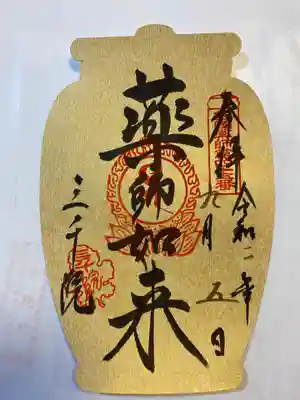 奉拝
令和二年
九月五日
薬師如来
三千院